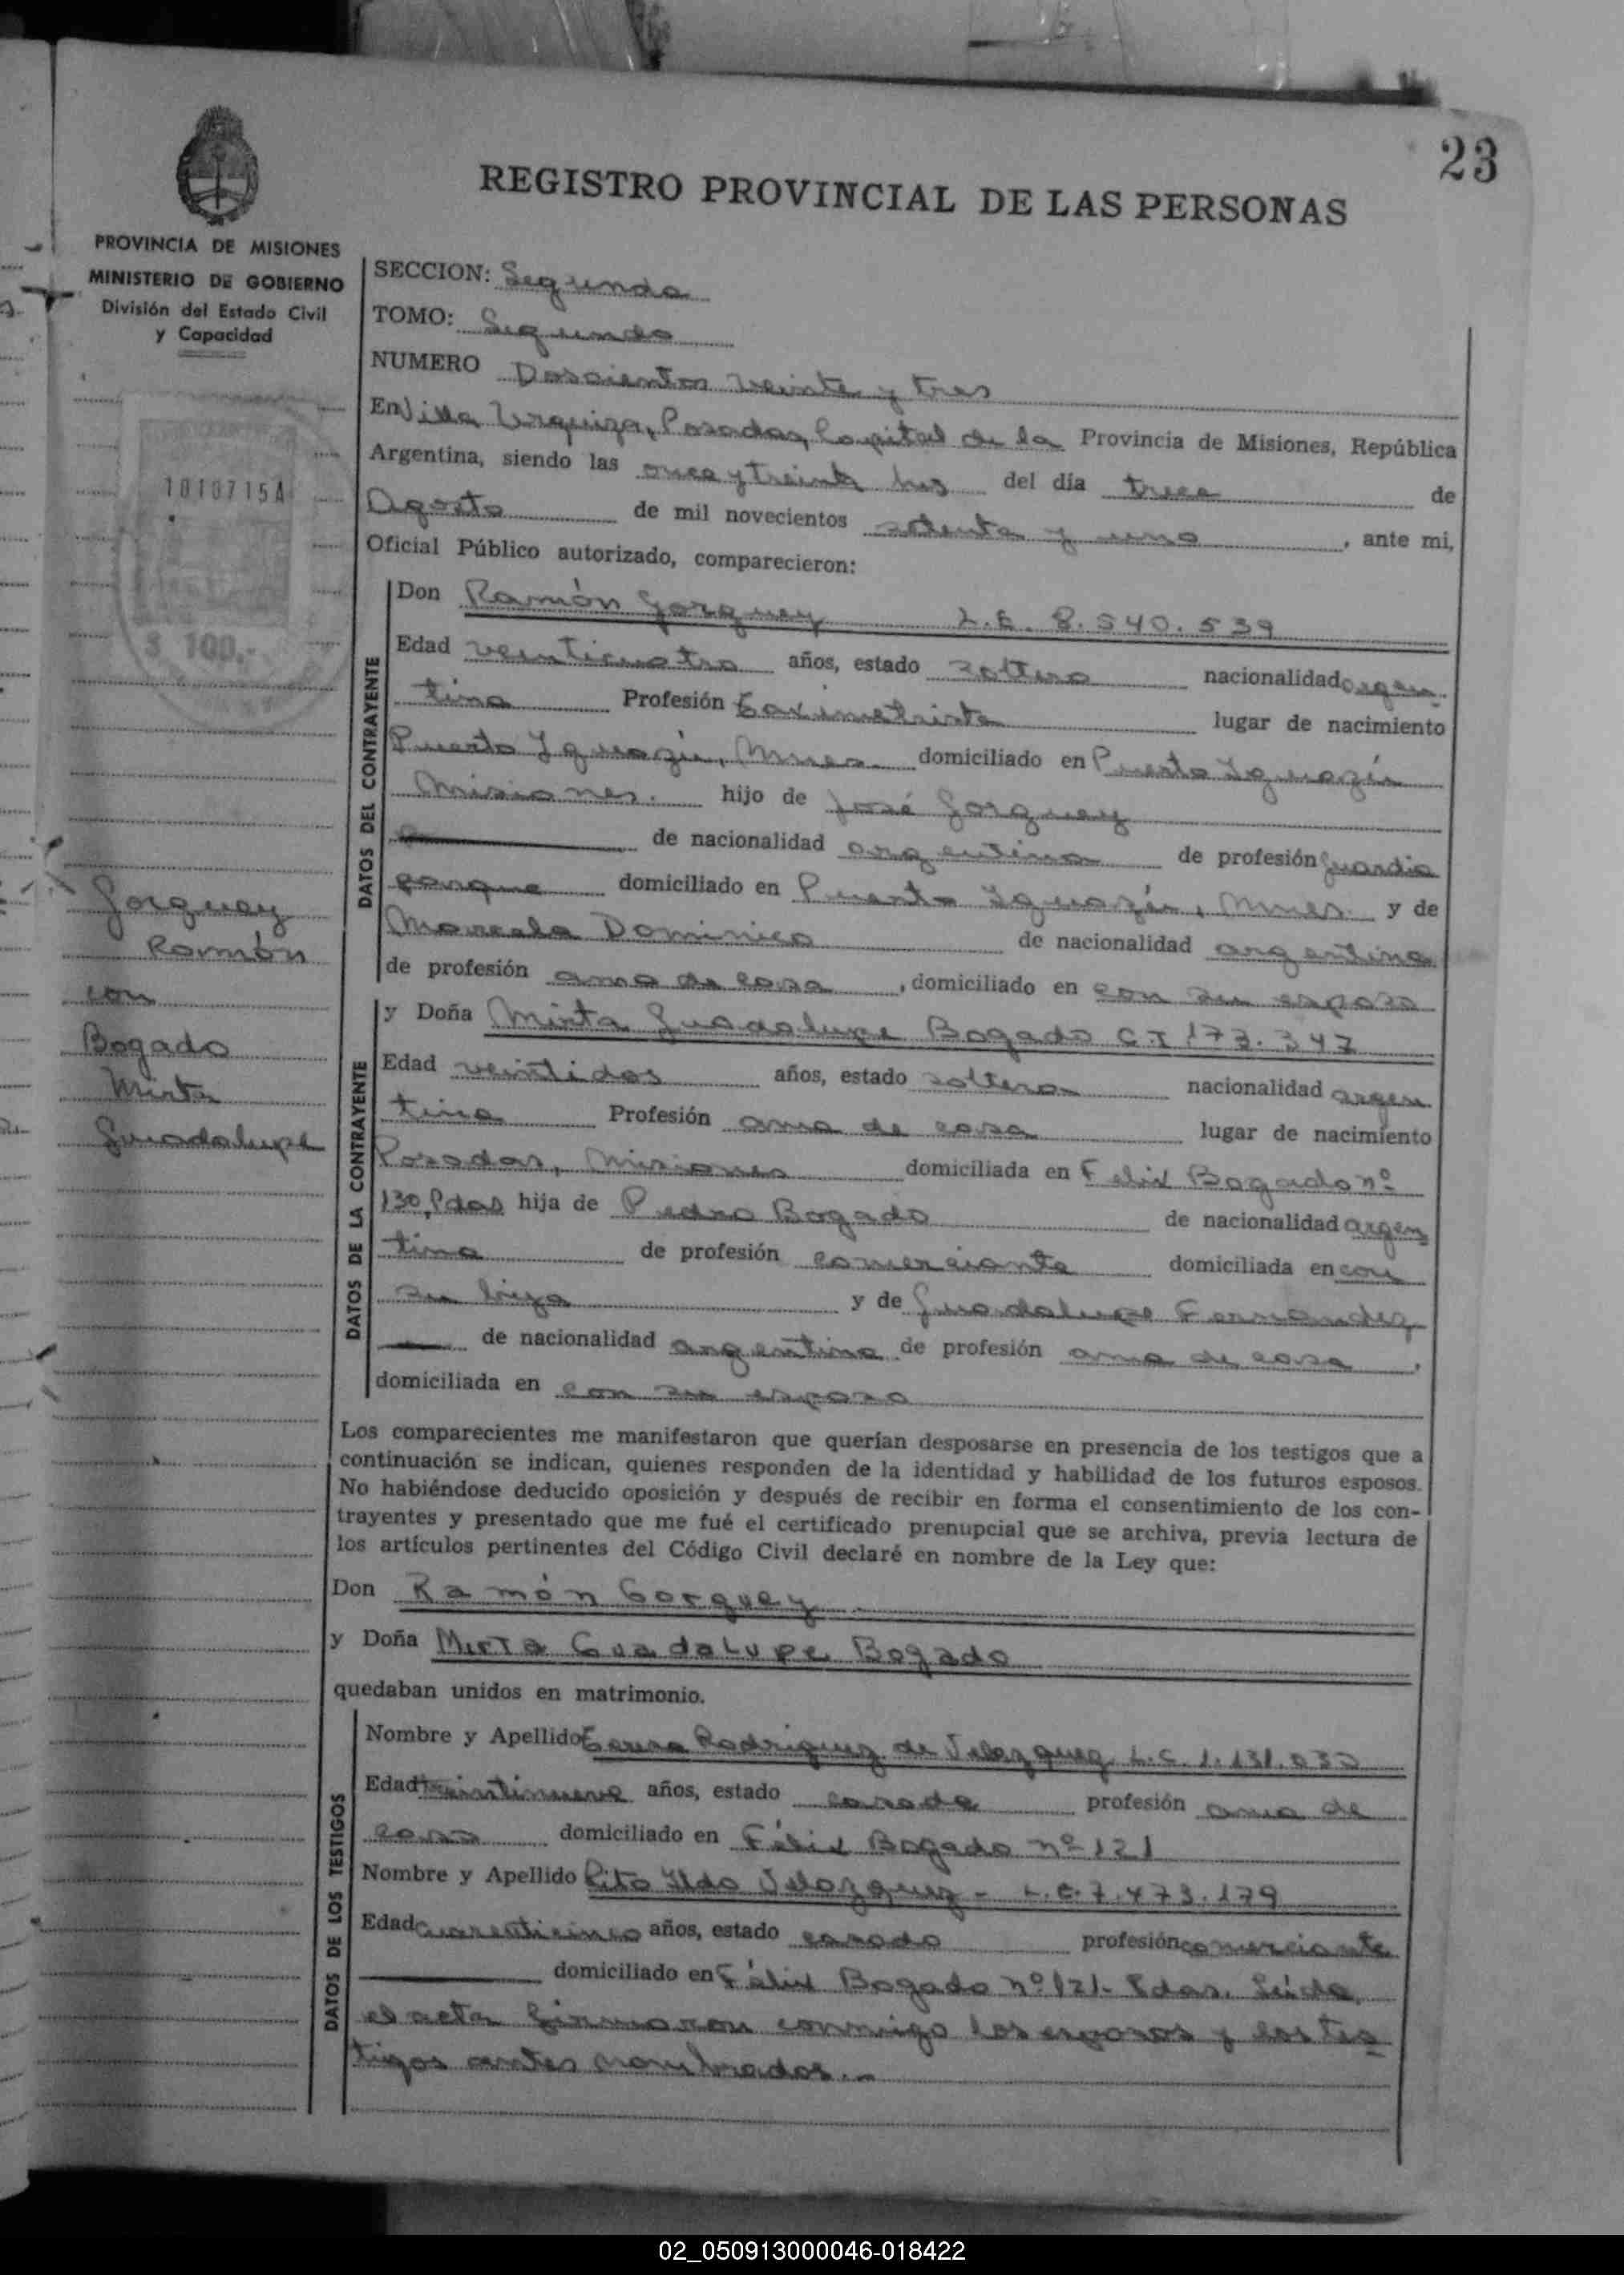 23
REGISTRO PROVINCIAL DE LAS PERSONAS
PROVINCIA DE MISIONES
MINISTERIO DE GOBIERNO
División del Estado Civil
y Capacidad
1010715A
$ 100.-
Gorguey
Ramón
con
Bogado
Mirta
Guadalupe
SECCION: Segunda
TOMO: Segundo
NUMERO Doscientos veinte y tres
En Villa Urquiza, Posadas, Capital de la Provincia de Misiones, República
Argentina, siendo las once y treinta hrs del día trece de
Agosto de mil novecientos setenta y uno, ante mi,
Oficial Público autorizado, comparecieron:
DATOS DEL CONTRAYENTE
Don Ramón Gorguey L.E. 8.540.539
Edad veinticuatro años, estado soltero nacionalidad argen
tina Profesión taximetrista lugar de nacimiento
Puerto Iguazú, Mnes. domiciliado en Puerto Iguazú
Misiones. hijo de José Gorguey
de nacionalidad argentina de profesión guardia
parque domiciliado en Puerto Iguazú, Mnes. y de
Marcela Dominica de nacionalidad argentina
de profesión ama de casa, domiciliado en con su esposo
DATOS DE LA CONTRAYENTE
y Doña Mirta Guadalupe Bogado C.I 173.347
Edad veintidos años, estado soltera nacionalidad argen
tina Profesión ama de casa lugar de nacimiento
Posadas, Misiones domiciliada en Felix Bogado nº
130, Pdas hija de Pedro Bogado de nacionalidad argen
tina de profesión comerciante domiciliada en con
su hija y de Guadalupe Fernandez
de nacionalidad argentina de profesión ama de casa,
domiciliada en con su esposo
Los comparecientes me manifestaron que querían desposarse en presencia de los testigos que a
continuación se indican, quienes responden de la identidad y habilidad de los futuros esposos.
No habiéndose deducido oposición y después de recibir en forma el consentimiento de los con-
trayentes y presentado que me fué el certificado prenupcial que se archiva, previa lectura de
los artículos pertinentes del Código Civil declaré en nombre de la Ley que:
Don Ramón Gorguey
y Doña Mirta Guadalupe Bogado
quedaban unidos en matrimonio.
DATOS DE LOS TESTIGOS
Nombre y Apellido Teresa Rodriguez de Velazquez L.C. 1.131.030
Edad años, estado casada profesión ama de
casa domiciliado en Félix Bogado nº 121
Nombre y Apellido Rito Ildo Velazquez - L.E. 7.473.179
Edad cuarenticinco años, estado casado profesión comerciante
domiciliado en Félix Bogado nº 121- Pdas. Leída
el acta firmaron conmigo los esposos y los tes
tigos antes nombrados.-
02_050913000046-018422